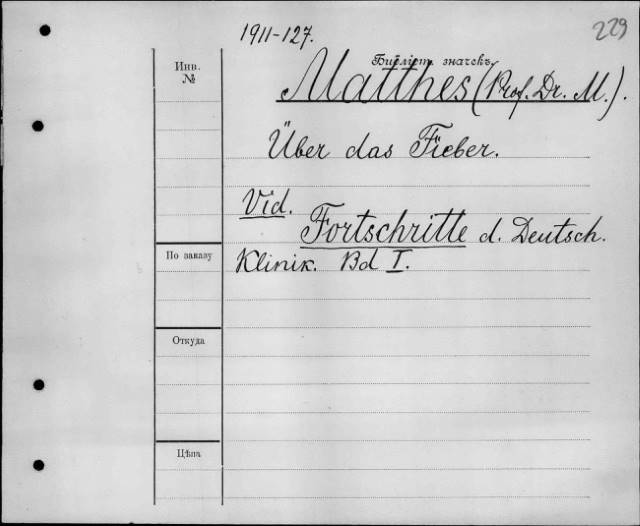 1911-127.
229
Инв.
№
Библіот. значекъ
Matthes (Prof. Dr. M.).
Über das Fieber.
Vid.
Fortschritte d. Deutsch.
По заказу
Klinik. Bd I.
Откуда
Цѣна